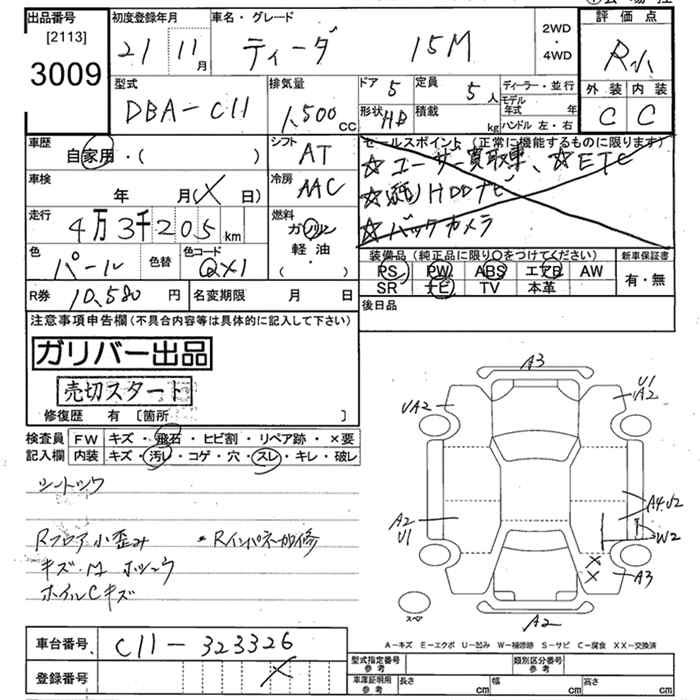 出品番号
[2113]
3009
初度登録年月
21 11月
車名・グレード
ティーダ 15M
2WD
・
4WD
評価点
R小
外装 内装
C C
型式
DBA-C11
排気量
1,500cc
ドア 5
定員 5人
形状 HB
積載 kg
ディーラー・並行
モデル年式 年
ハンドル 左・右
車歴
自家用・( )
シフト
AT
車検
年 月(X 日)
冷房
AAC
走行
4万3千205km
燃料
ガソリン
軽油
・( )
色
パール
色替
色コード
QX1
R券 10,580円
名変期限 月 日
セールスポイント(正常に機能するものに限ります)
☆ユーザー買取車、☆ETC
☆(純)HDDナビ
☆バックカメラ
装備品(純正品に限り○をつけてください)
PS PW ABS エアB AW
SR ナビ TV 本革
新車保証書
有・無
後日品
注意事項申告欄(不具合内容等は具体的に記入して下さい)
ガリバー出品
売切スタート
修復歴 有 〔箇所 〕
検査員記入欄
FW キズ・飛石・ヒビ割・リペア跡・×要
内装 キズ・汚レ・コゲ・穴・スレ・キレ・破レ
Rフロア小歪み ※Rインパネ加修
ホイルCキズ
A3
UA2
U1
A2
A2
U1
A4U2
W2
X
X
A3
A2
スペア
A-キズ E-エクボ U-凹み W-補修跡 S-サビ C-腐食 XX-交換済
車台番号
C11-323326
登録番号
X
型式指定番号
参考
類別区分番号
参考
車庫証明用
参考
長さ cm
幅 cm
高さ cm